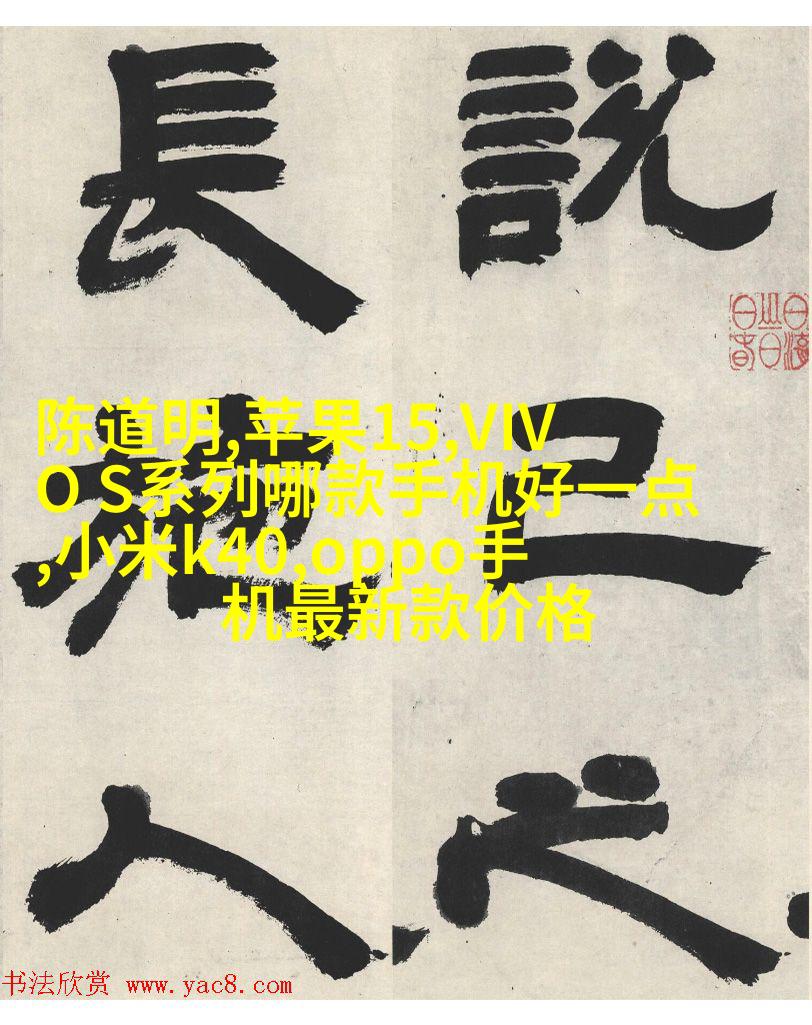 說己之
長施人
陈道明,苹果15,VIV
O S系列哪款手机好一点
,小米k40,oppo手
机最新款价格
书法欣赏 www.yac8.com